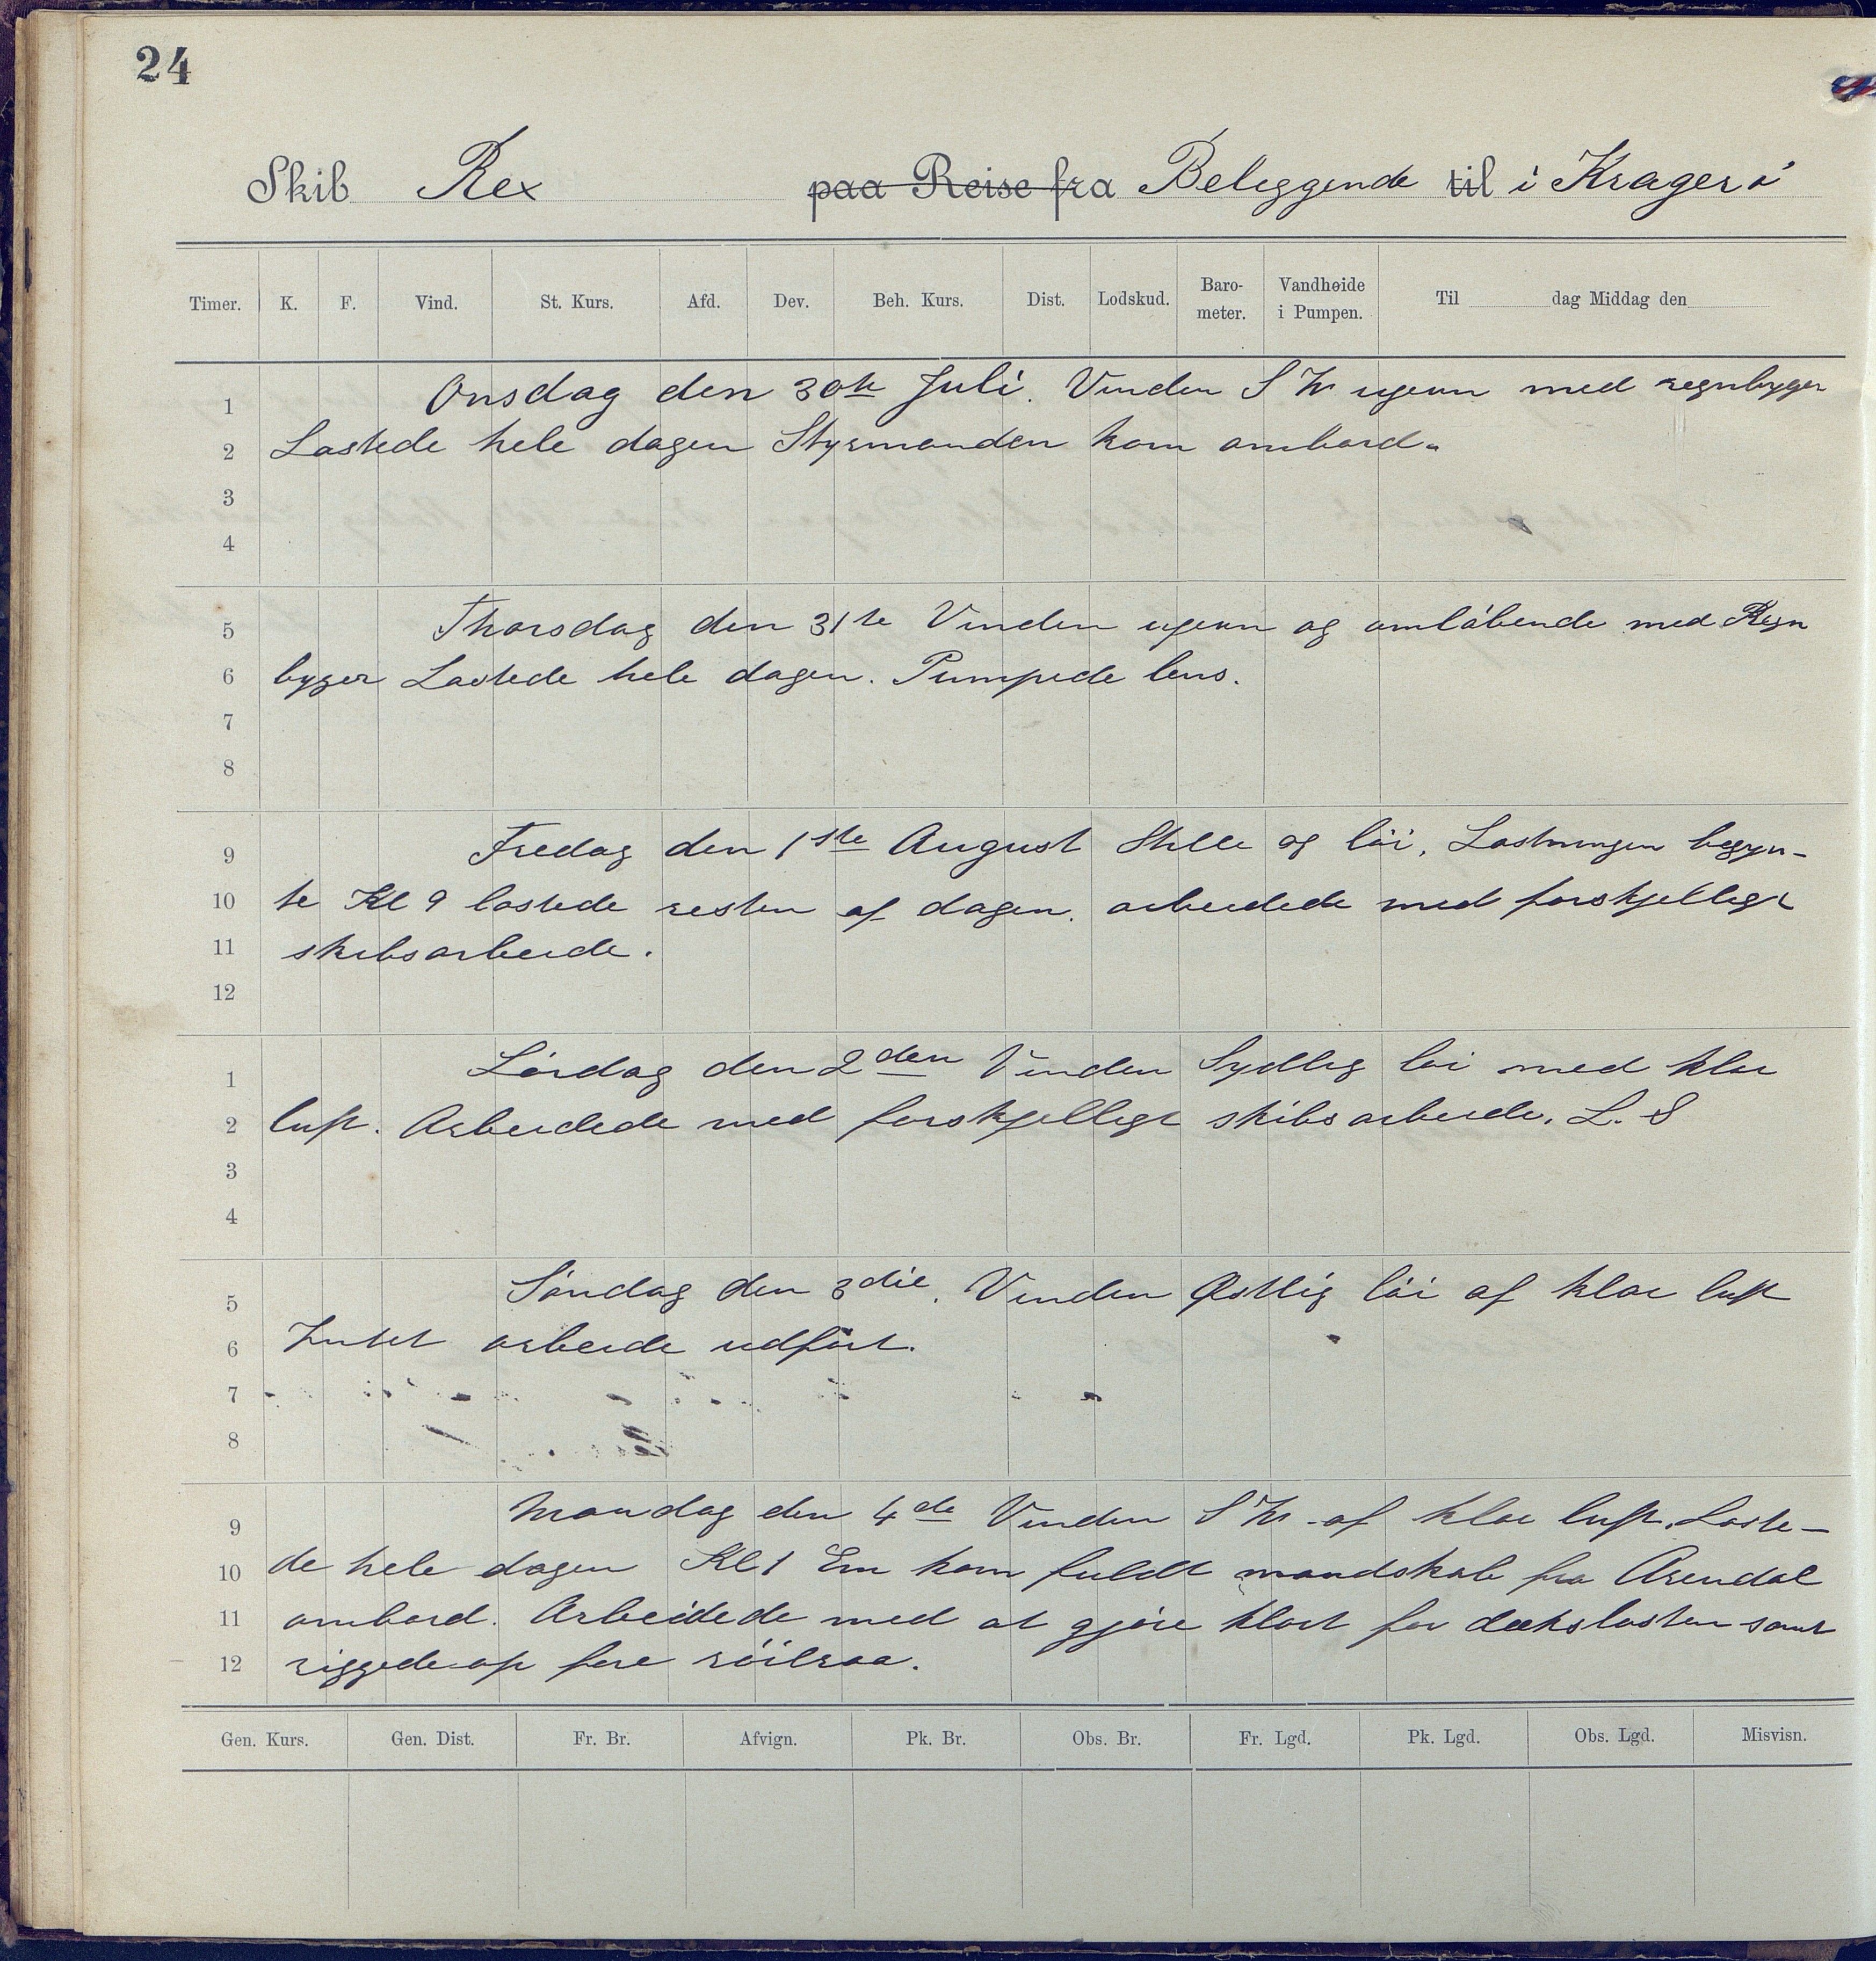 24
Skib Rex paa Reise fra Beliggende til i Kragerö
Timer. K. F. Vind. St. Kurs. Afd. Dev. Beh. Kurs. Dist. Lodskud. Baro-meter. Vandhøide i Pumpen. Til dag Middag den
1 Onsdag den 30te Juli. Vinden S W ujevn med regnbyger
2 Lastede hele dagen Styrmanden kom ombord.
3
4
5 Thorsdag den 31te Vinden ujevn og omlöbende med Regn
6 byger Lastede hele dagen. Pumpede lens.
7
8
9 Fredag den 1ste August Stille og löi, Lastningen begyn-
10 te Kl 9 lastede resten af dagen. arbeidede med forskjelligt
11 skibsarbeide.
12
1 Lördag den 2den Vinden Sydlig löi med klar
2 luft. Arbeidede med forskjelligt skibsarbeide. L. S
3
4
5 Söndag den 3die. Vinden Østlig löi af klar luft
6 Intet arbeide udfört.
7
8
9 Mandag den 4de Vinden S W af klar luft. Laste-
10 de hele dagen Kl 1 Em kom fuldt mandskab fra Arendal
11 ombord. Arbeidede med at gjöre klart for dækslasten samt
12 riggede op fore röilraa.
Gen. Kurs. Gen. Dist. Fr. Br. Afvign. Pk. Br. Obs. Br. Fr. Lgd. Pk. Lgd. Obs. Lgd. Misvisn.